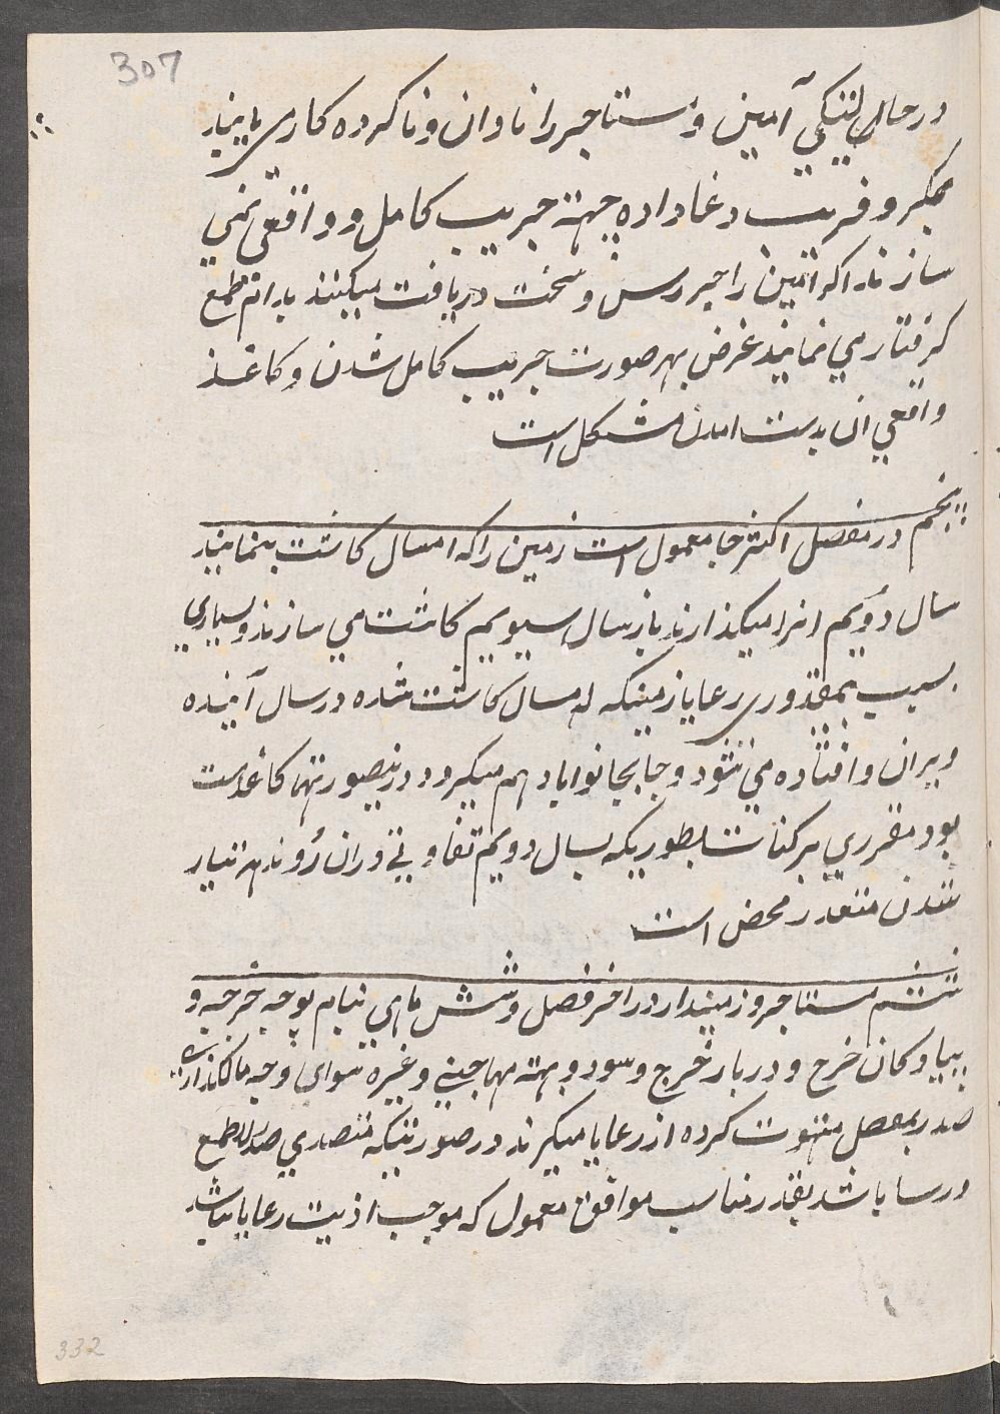 307
در حال امین و مستاجر را نادان و ناکرده کار می یابند
بمکر و فریب دغا داده جهة جریب کامل و واقعی نمی
سازند اکر امین را جررس و سخت دریافت میکنند بدام طمع
کرفتار می نمایند غرض بهر صورت جریب کامل شدن و کاغذ
واقعی ان بدست امدن مشکل است
پنجم در مفصل اکثر جا معمول است زمین را که امسال کاشت مینمایند
سال دویم انرا میکذارند باز سال سیویم کاشت می سازند و بسیاری
بسبب بمقدوری رعایا زمینکه امسال کاشت شده در سال آینده
ویران و افتاده می شود و جابجا نواباد هم میکردد درینصورتها کاغذ است
بود مقرری پرکنات بطوریکه بسال دویم تفاوتی دران رو ندهد تیار
شدن متعذر محض است
ششم مستاجر و زمیندار در اخر فصل و شش ماهی بنام بوجه خرجه و
و کان خرج و دربار خرج و سود و بهته مهاجنی و غیره سوای وجه مالکذاری
صدر بمفصل کرده از رعایا میکیرند در صورتیکه متصدی صدر طمع
ورسا باشد بقدر مناسب موافق معمول که موجب اذیت رعایا نباشد
332